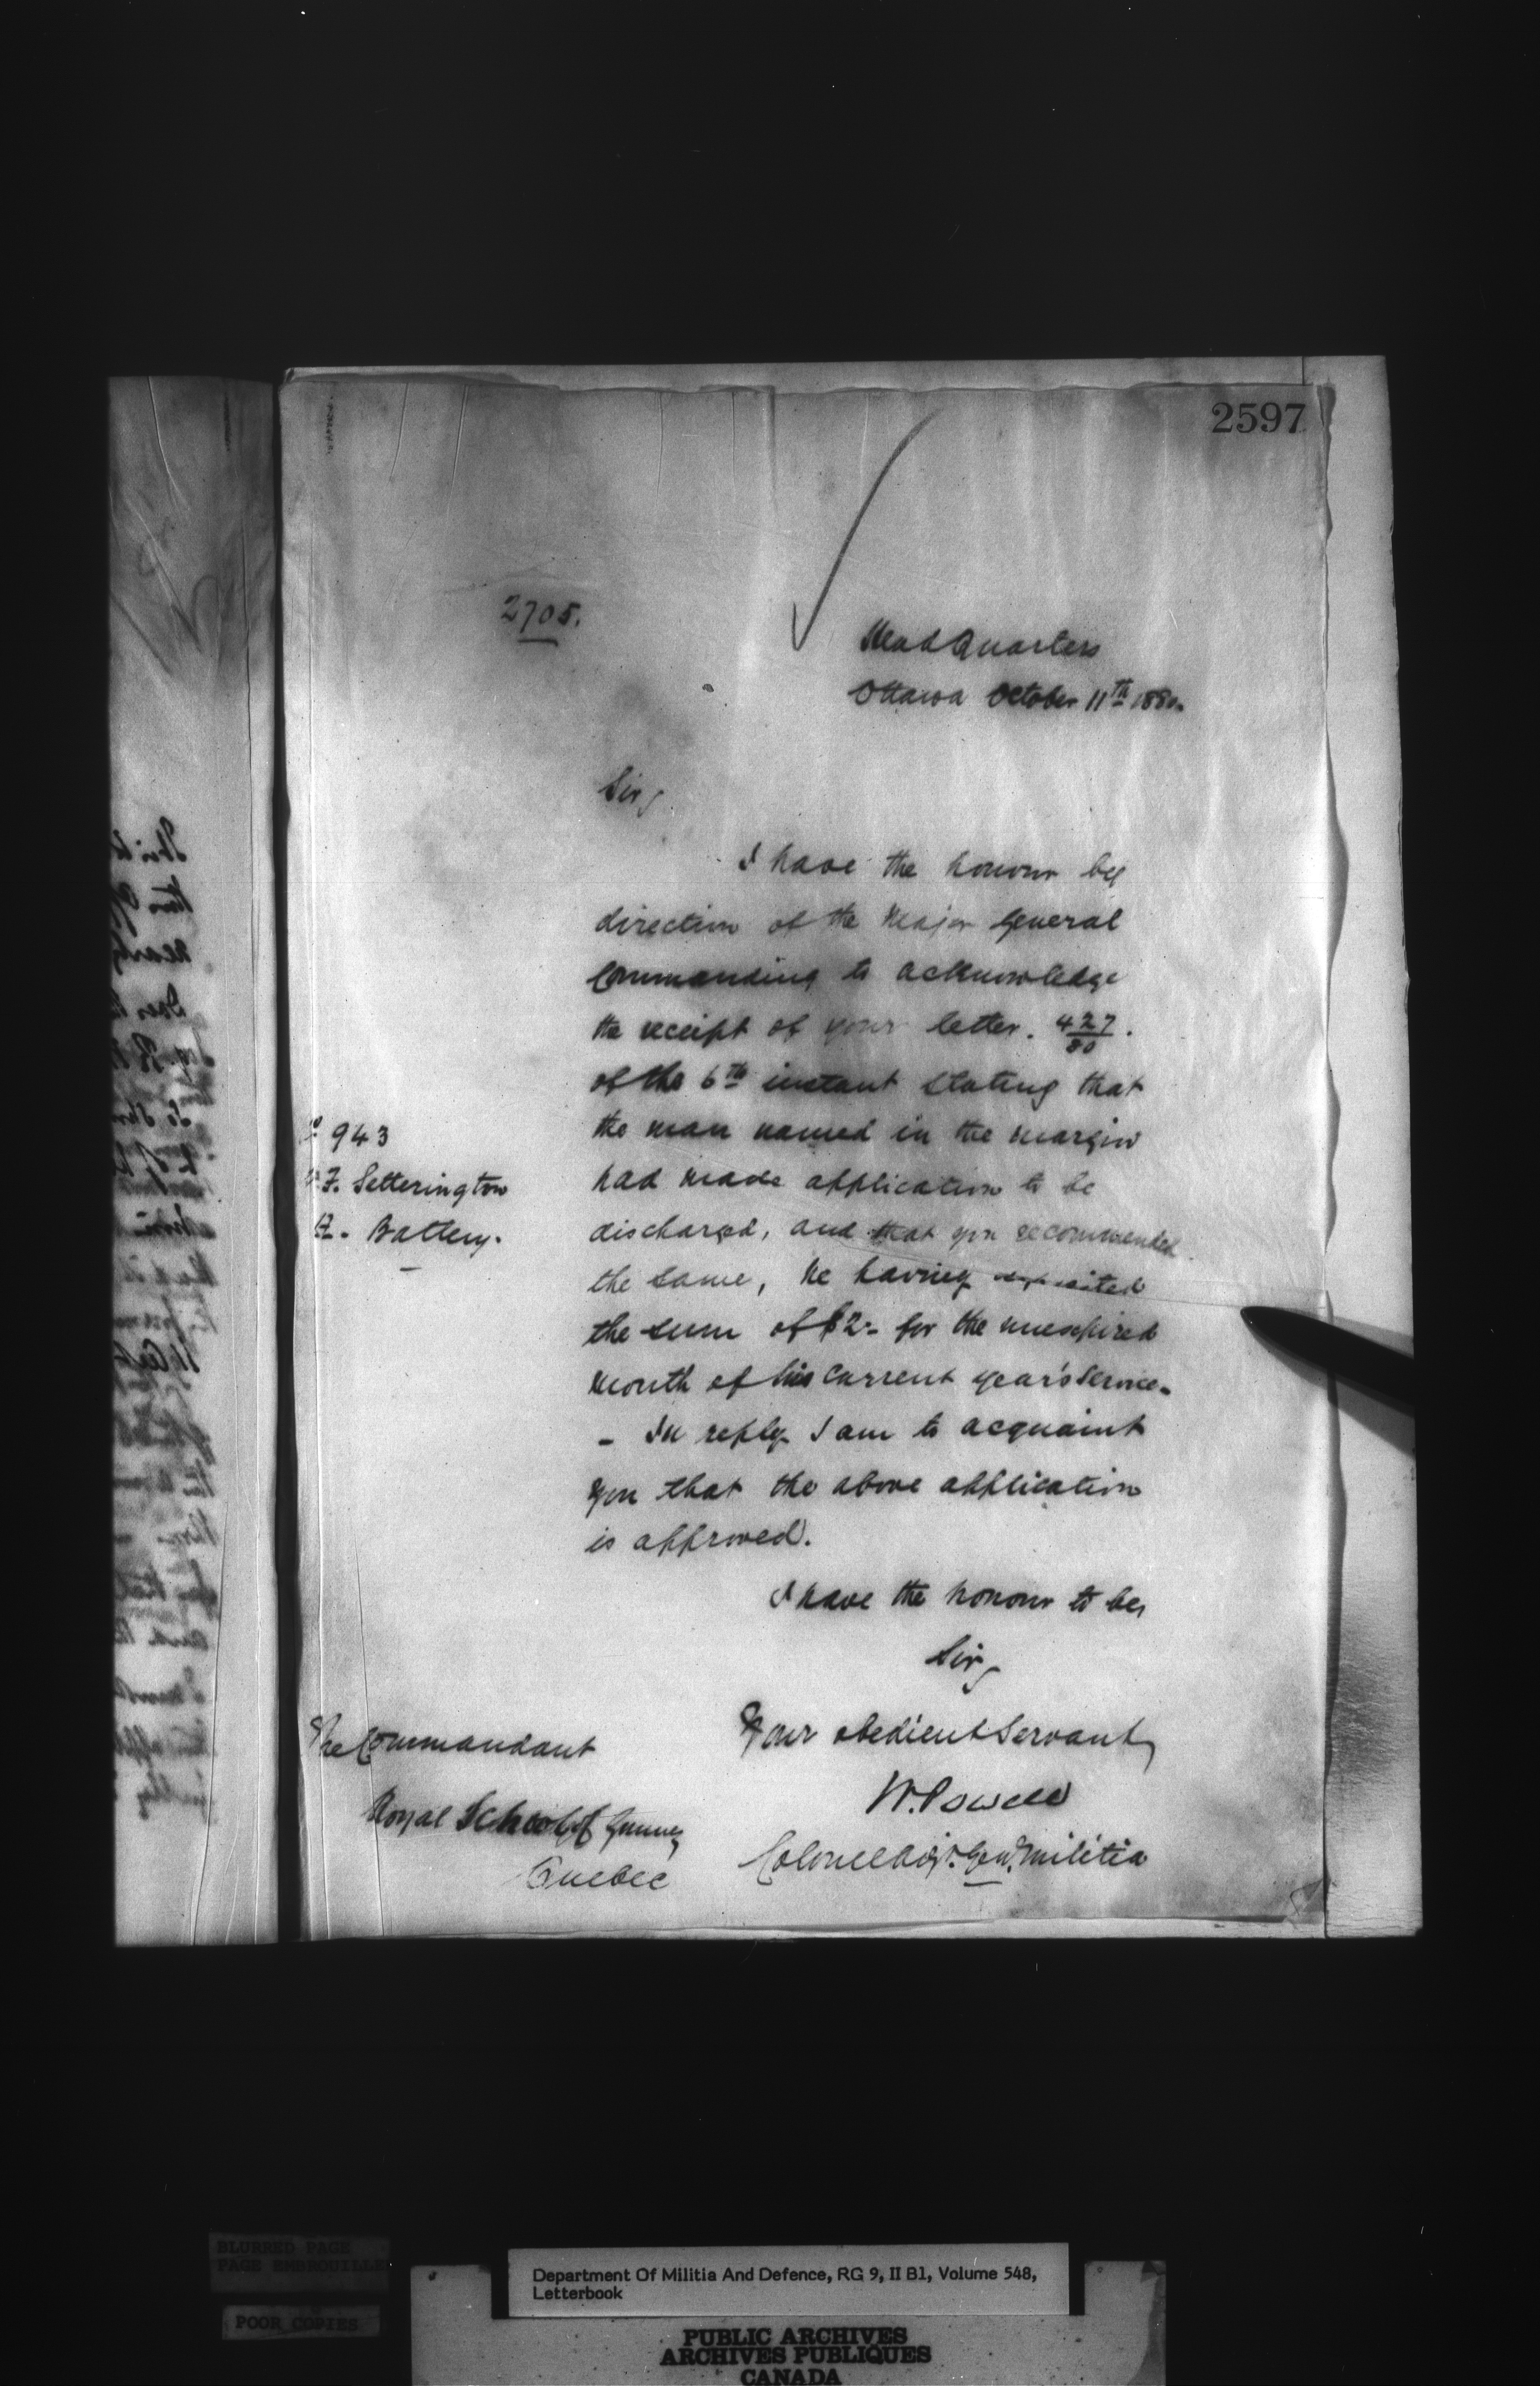 2597
2705.
Head Quarters
Ottawa October 11th 1880.
Sir,
I have the honour by
direction of the Major General
Commanding to acknowledge
the receipt of your letter. 427/80.
of the 6th instant stating that
the man named in the margin
had made application to be
discharged, and that you recommended
the same, he having deposited
the sum of $2- for the unexpired
month of his current year's service.
- In reply I am to acquaint
you that the above application
is approved.
943
F. Setterington
Battery.
I have the honour to be,
Sir,
Your obedient Servant,
W. Powell
Colonel Adjt. Genl. Militia
The Commandant
Royal School of Gunnery
Quebec
BLURRED PAGE
PAGE EMBROUILLE
POOR COPIES
Department Of Militia And Defence, RG 9, II B1, Volume 548,
Letterbook
PUBLIC ARCHIVES
ARCHIVES PUBLIQUES
CANADA